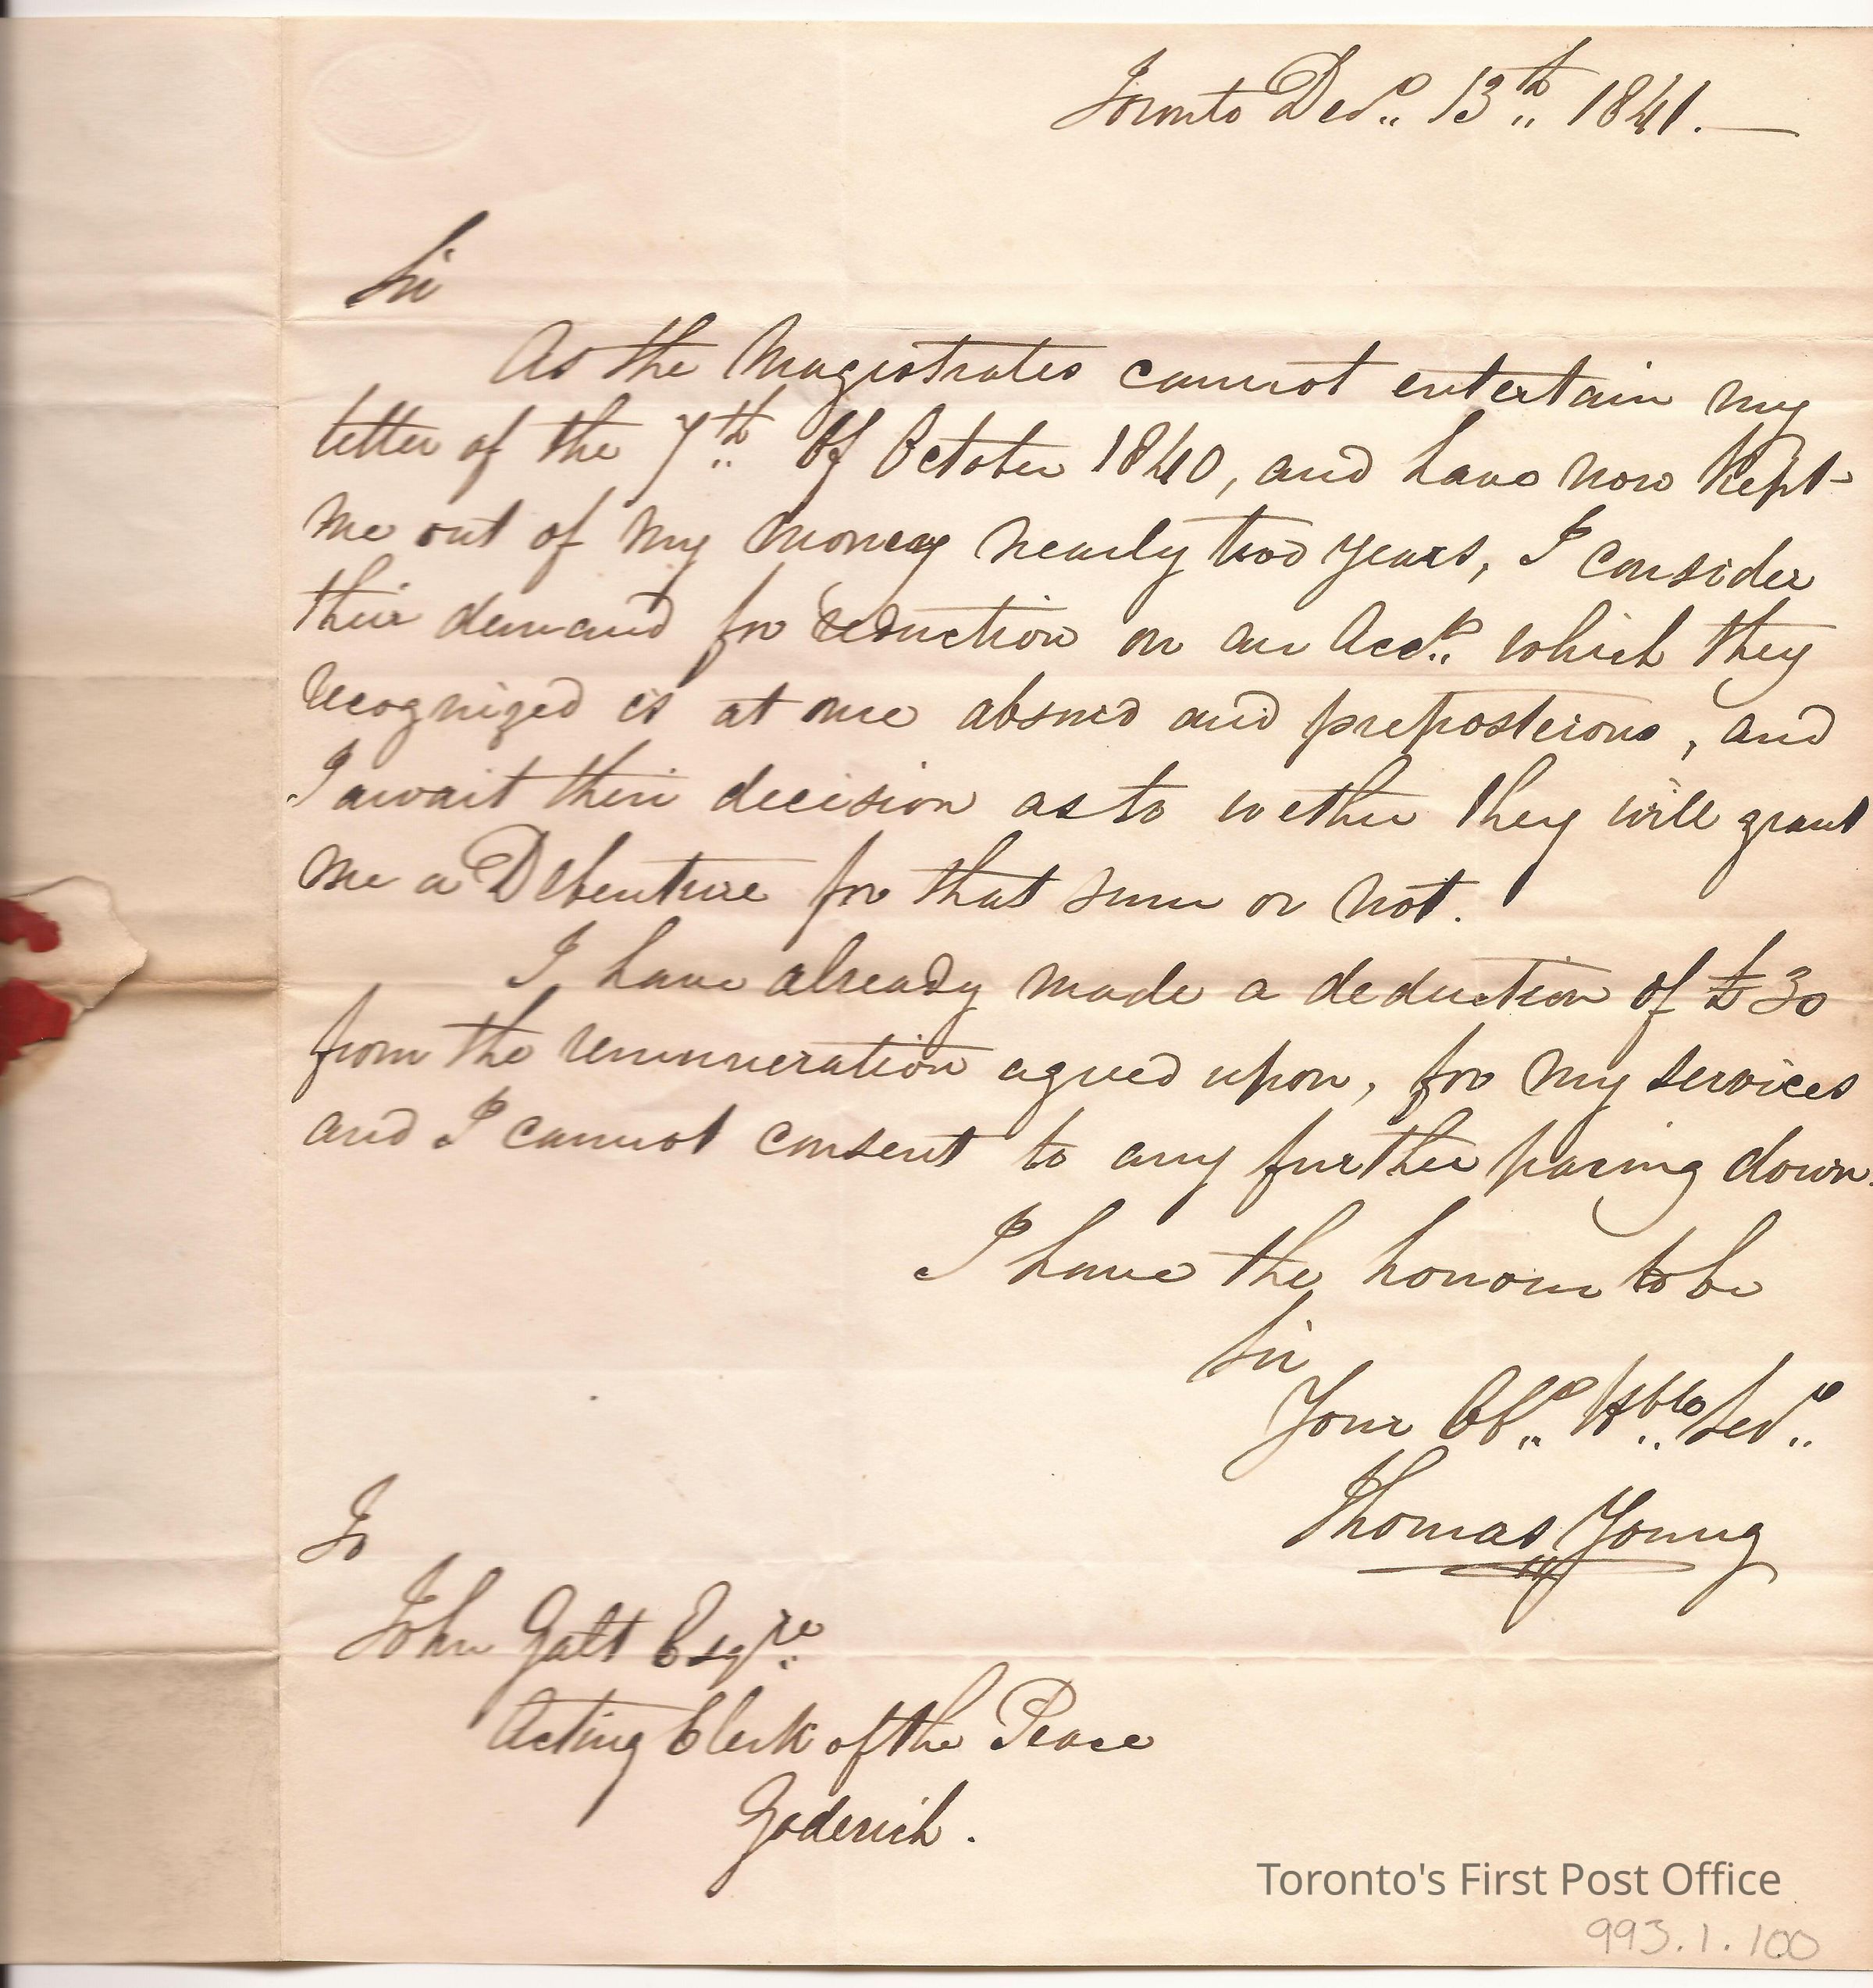 Toronto Decr. 13th 1841. —
Sir
As the Magistrates cannot entertain my
letter of the 7th Of October 1840, and have now Kept
me out of my money nearly two years, I consider
their demand for reduction on an Acct. which they
recognized is at once absurd and preposterous, and
I await their decision as to wether they will grant
me a Debenture for that sum or not.
I have already made a deduction of £30
from the remuneration agreed upon, for my services
and I cannot consent to any further paring down.
I have the honour to be
Sir
Your Obt. Hble Sert.
Thomas Young
To
John Galt Esqre.
Acting Clerk of the Peace
Goderich.
Toronto's First Post Office
993.1.100